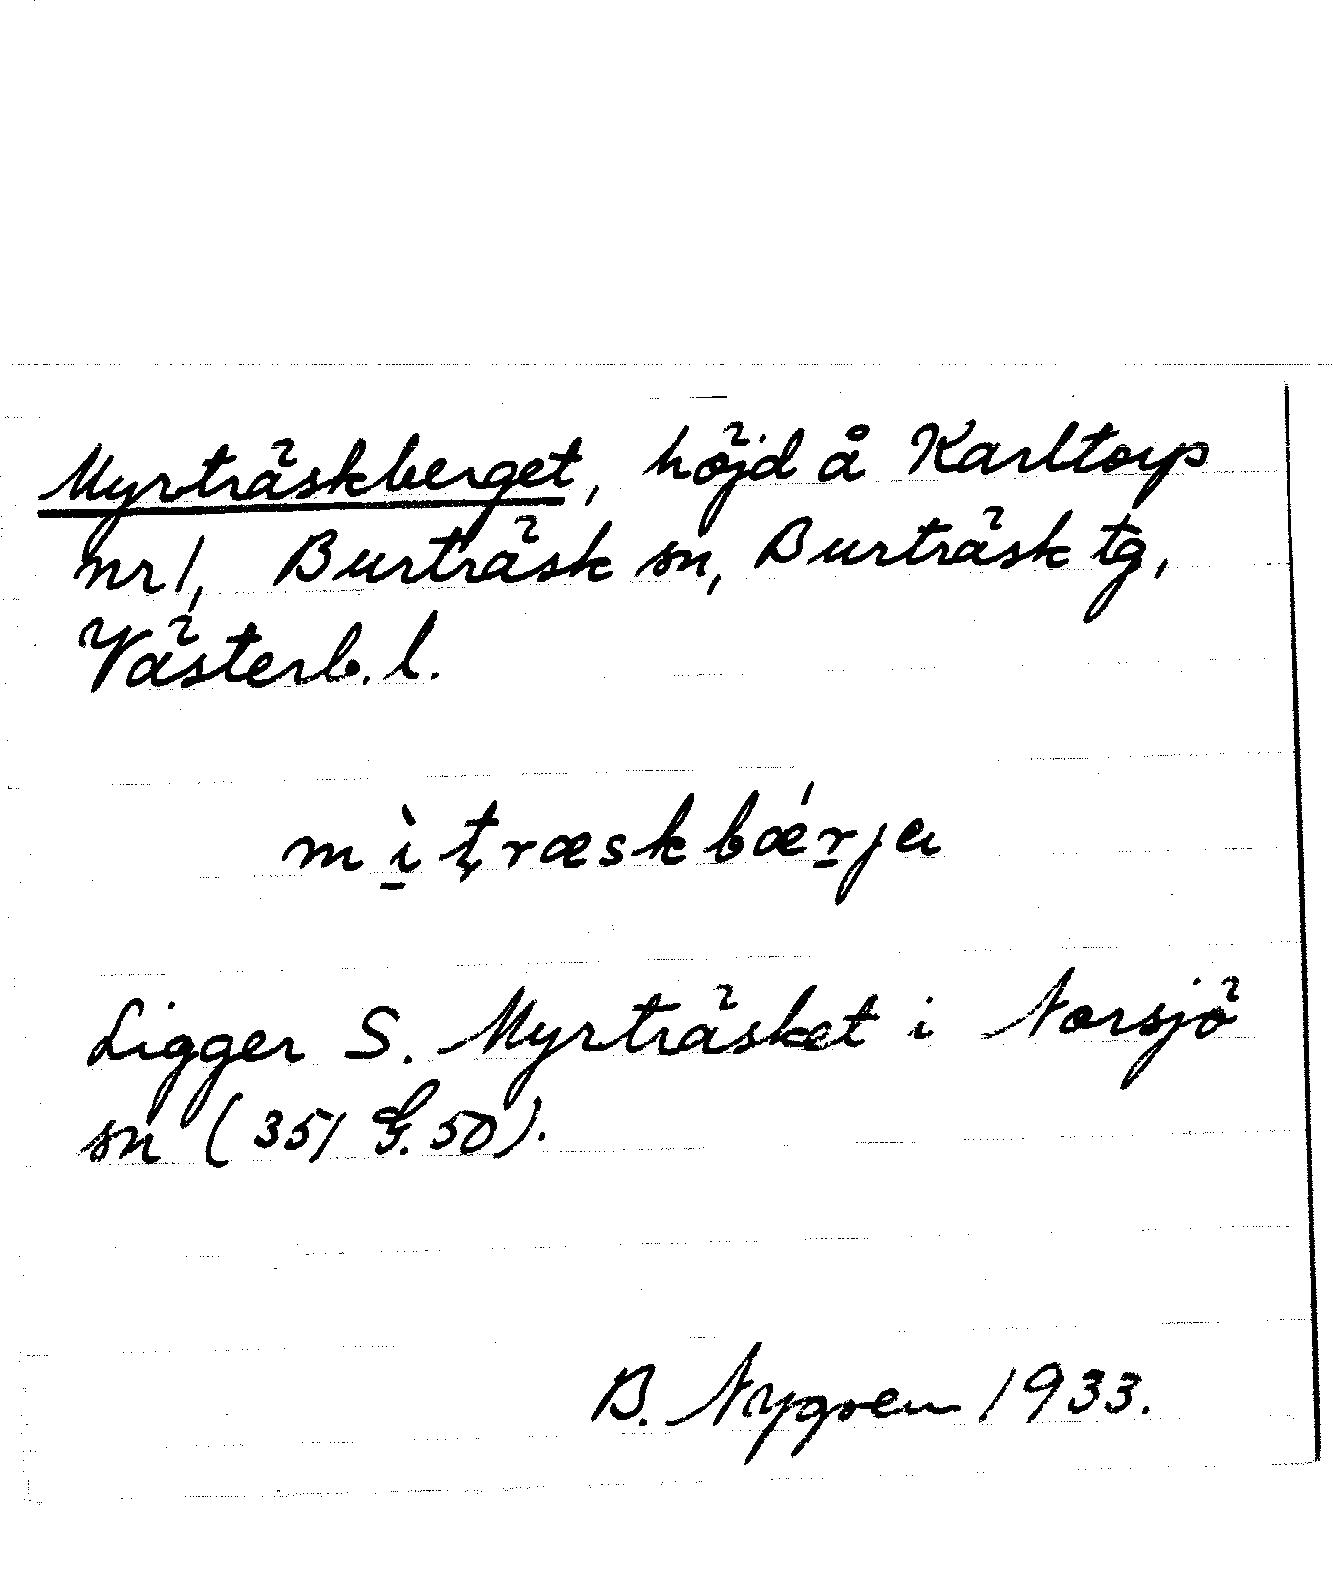 Myrträskberget, höjd å Karltorp
nr 1, Burträsk sn, Burträsk tg,
Västerb. l.
mìt̨ræskbǽrja
Ligger S. Myrträsket i Norsjö
sn (351 G. 50).
B. Nygren 1933.